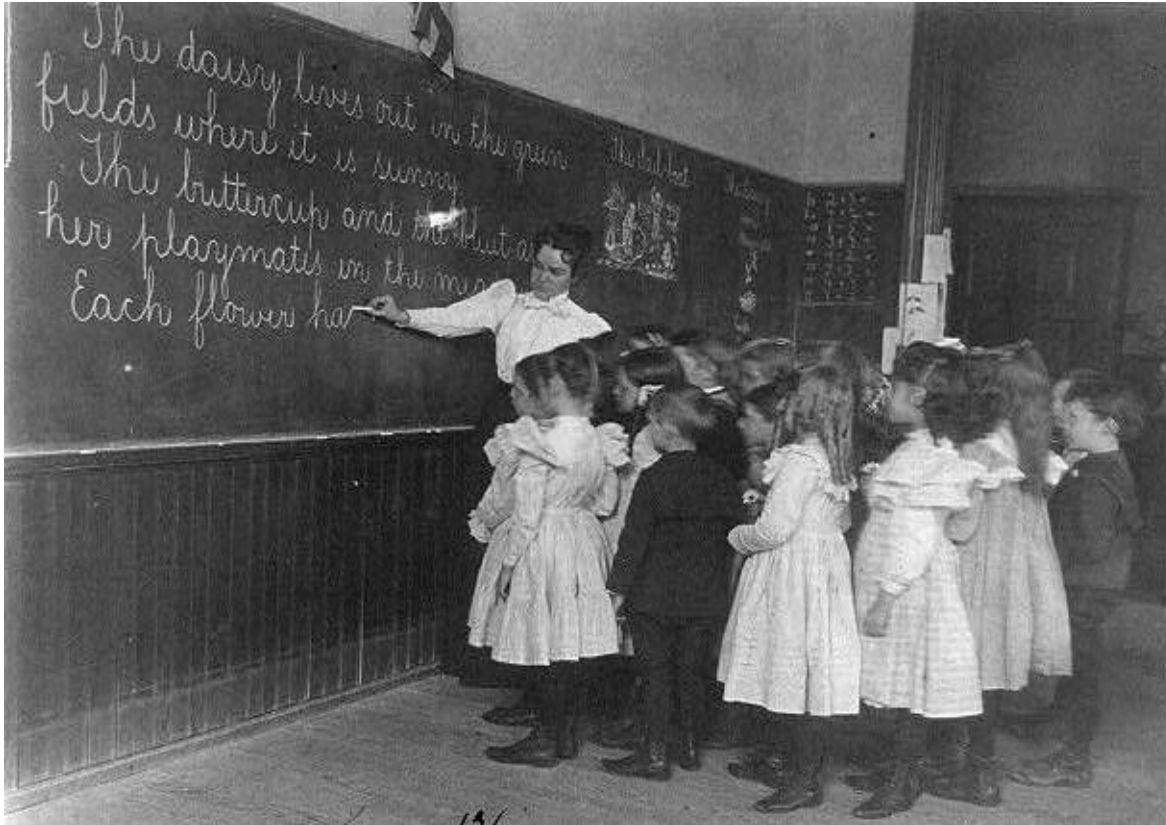 The daisy lives out in the green
fields where it is sunny.
The buttercup and the
her playmates in the
Each flower ha
The
131